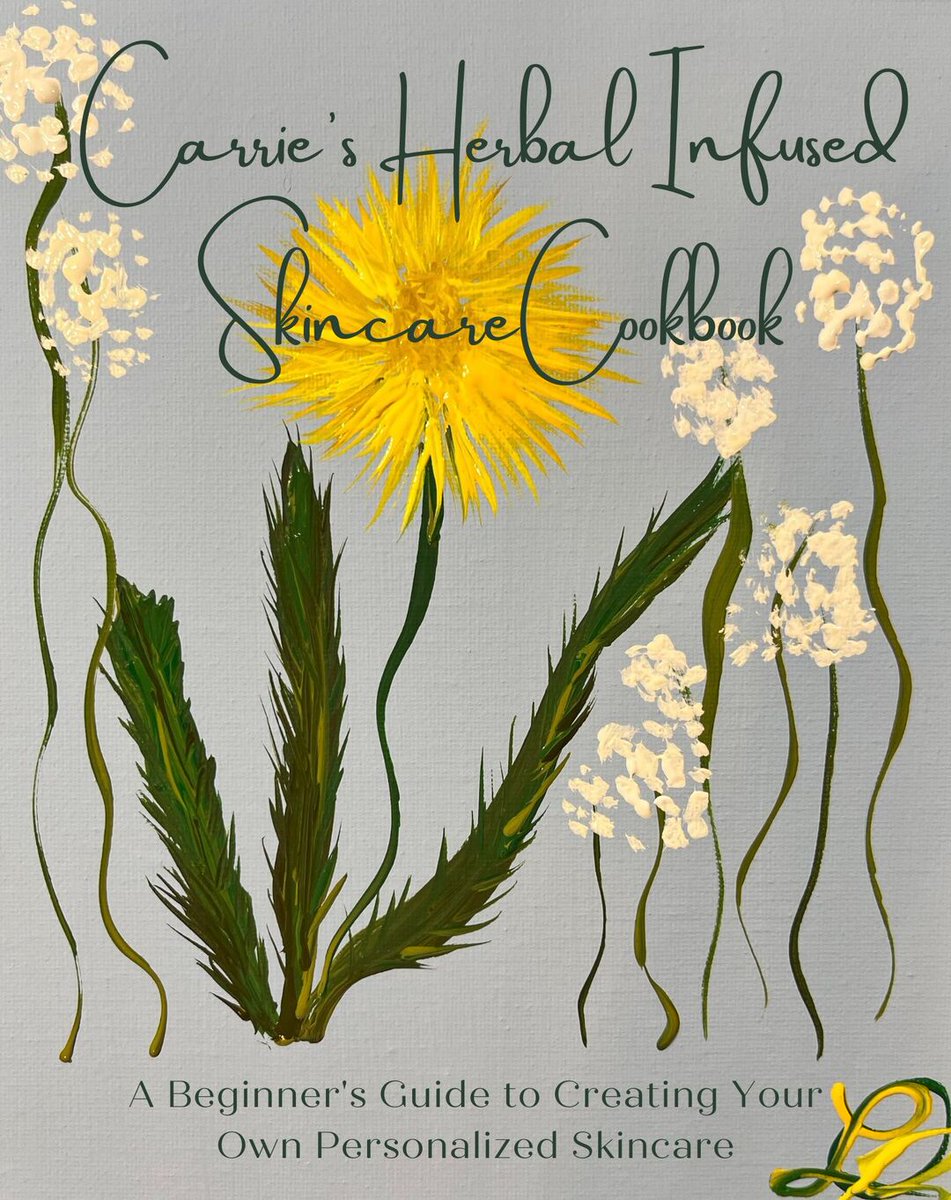 Carrie's Herbal Infused
Skincare Cookbook
A Beginner's Guide to Creating Your
Own Personalized Skincare